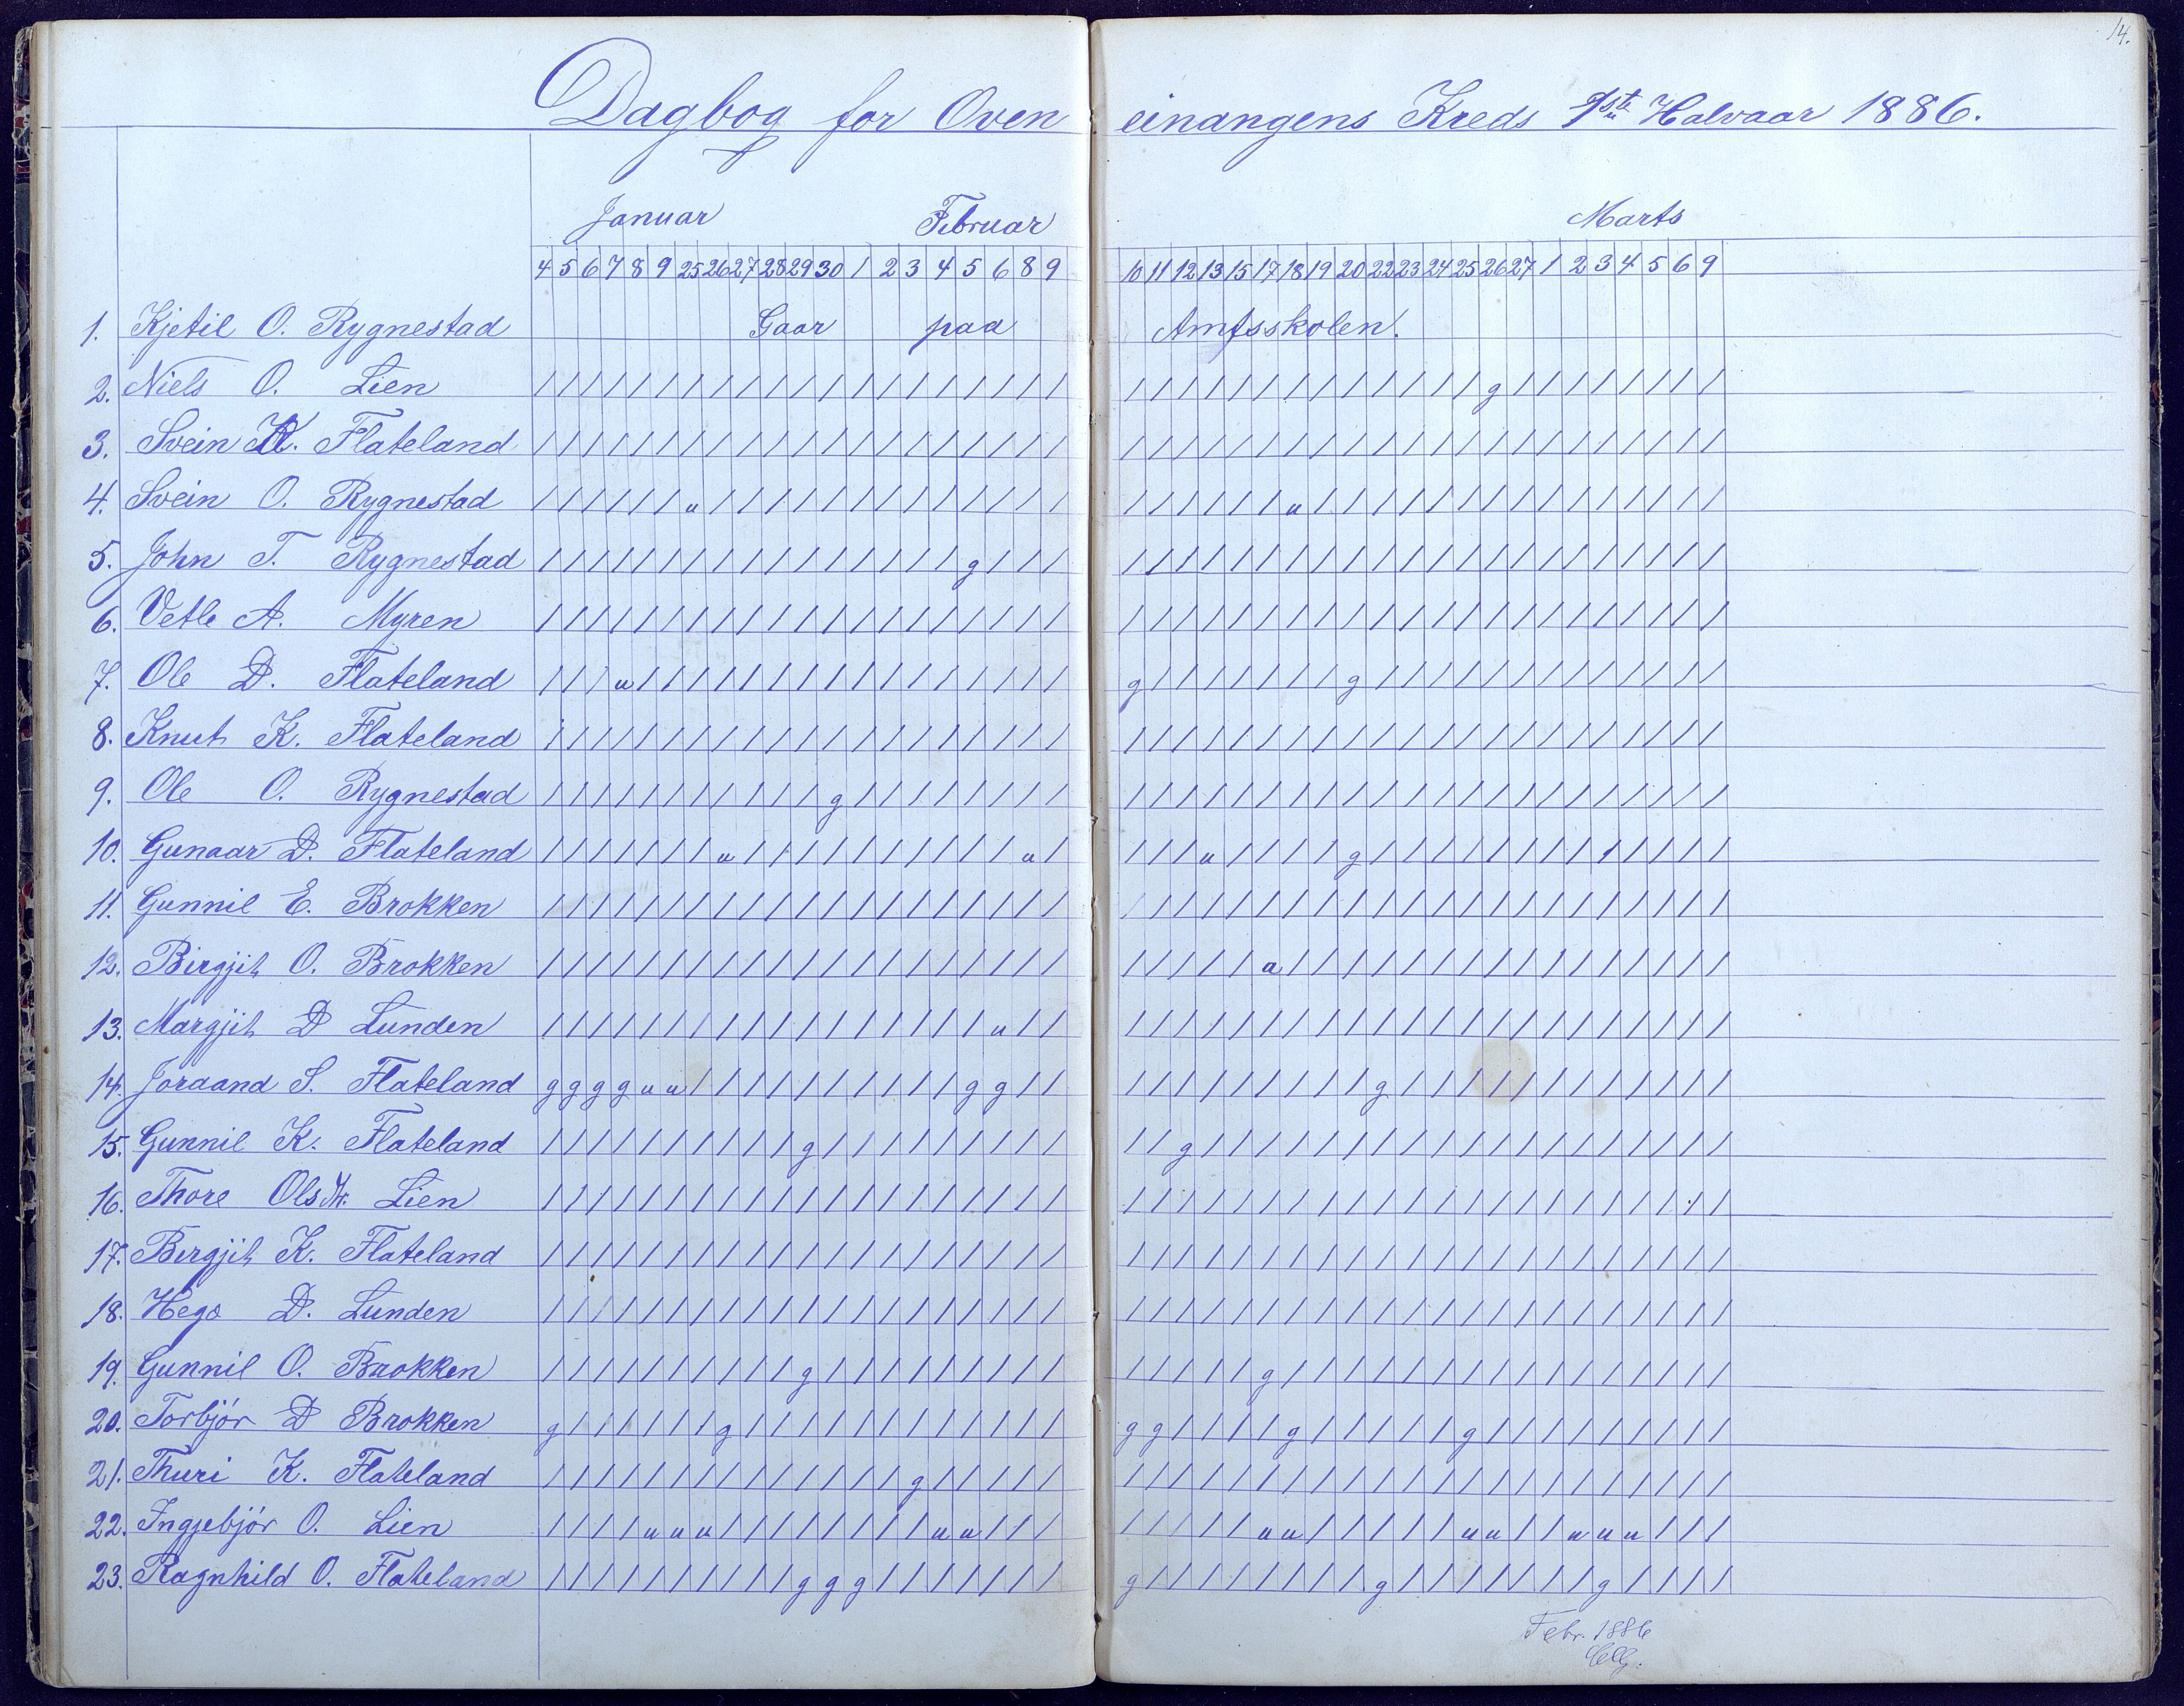 14.
Dagbog for Oveneinangens Kreds 1ste Halvaar 1886.
Januar Februar Marts
4 5 6 7 8 9 25 26 27 28 29 30 1 2 3 4 5 6 8 9 10 11 12 13 15 17 18 19 20 22 23 24 25 26 27 1 2 3 4 5 6 9
1. Kjetil O. Rygnestad Gaar paa Amtsskolen.
2. Niels O. Lien / / / / / / / / / / / / / / / / / / / / / / / / / / / / / / / / / g / / / / / / / /
3. Svein K. Flateland / / / / / / / / / / / / / / / / / / / / / / / / / / / / / / / / / / / / / / / / / /
4. Svein O. Rygnestad / / / / / / u / / / / / / / / / / / / / / / / / / / u / / / / / / / / / / / / / / /
5. John T. Rygnestad / / / / / / / / / / / / / / / / g / / / / / / / / / / / / / / / / / / / / / / / / /
6. Vetle A. Myren / / / / / / / / / / / / / / / / / / / / / / / / / / / / / / / / / / / / / / / / / /
7. Ole D. Flateland / / / u / / / / / / / / / / / / / / / / g / / / / / / / g / / / / / / / / / / / / /
8. Knut K. Flateland / / / / / / / / / / / / / / / / / / / / / / / / / / / / / / / / / / / / / / / / / /
9. Ole O. Rygnestad / / / / / / / / / / / g / / / / / / / / / / / / / / / / / / / / / / / / / / / / / /
10. Gunaar D. Flateland / / / / / / / u / / / / / / / / / / u / / / / u / / / / g / / / / / / / / / / / / /
11. Gunnil E. Brokken / / / / / / / / / / / / / / / / / / / / / / / / / / / / / / / / / / / / / / / / / /
12. Birgjit O. Brokken / / / / / / / / / / / / / / / / / / / / / / / / / u / / / / / / / / / / / / / / / /
13. Margjit D Lunden / / / / / / / / / / / / / / / / / u / / / / / / / / / / / / / / / / / / / / / / / /
14. Joraand S. Flateland g g g g u u / / / / / / / / / / g g / / / / / / / / / / / g / / / / / / / / / / / /
15. Gunnil K. Flateland / / / / / / / / / / g / / / / / / / / / / / g / / / / / / / / / / / / / / / / / / /
16. Thore Olsdtr. Lien / / / / / / / / / / / / / / / / / / / / / / / / / / / / / / / / / / / / / / / / / /
17. Birgjit K. Flateland / / / / / / / / / / / / / / / / / / / / / / / / / / / / / / / / / / / / / / / / / /
18. Hego D. Lunden / / / / / / / / / / / / / / / / / / / / / / / / / / / / / / / / / / / / / / / / / /
19. Gunnil O. Brokken / / / / / / / / / / g / / / / / / / / / / / / / / g / / / / / / / / / / / / / / / /
20. Torbjór D Brokken g / / / / / / g / / / / / / / / / / / / g g / / / / g / / / / / g / / / / / / / / /
21. Thuri K. Flateland / / / / / / / / / / / / / / g / / / / / / / / / / / / / / / / / / / / / / / / / / /
22. Ingjebjór O. Lien / / / / u u u / / / / / / / / u u / / / / / / / / u u / / / / / u u / / u u u / / /
23. Ragnhild O. Flateland / / / / / / / / / / g g g / / / / / / / g / / / / / / / / g / / / / / / / g / / / /
Febr. 1886